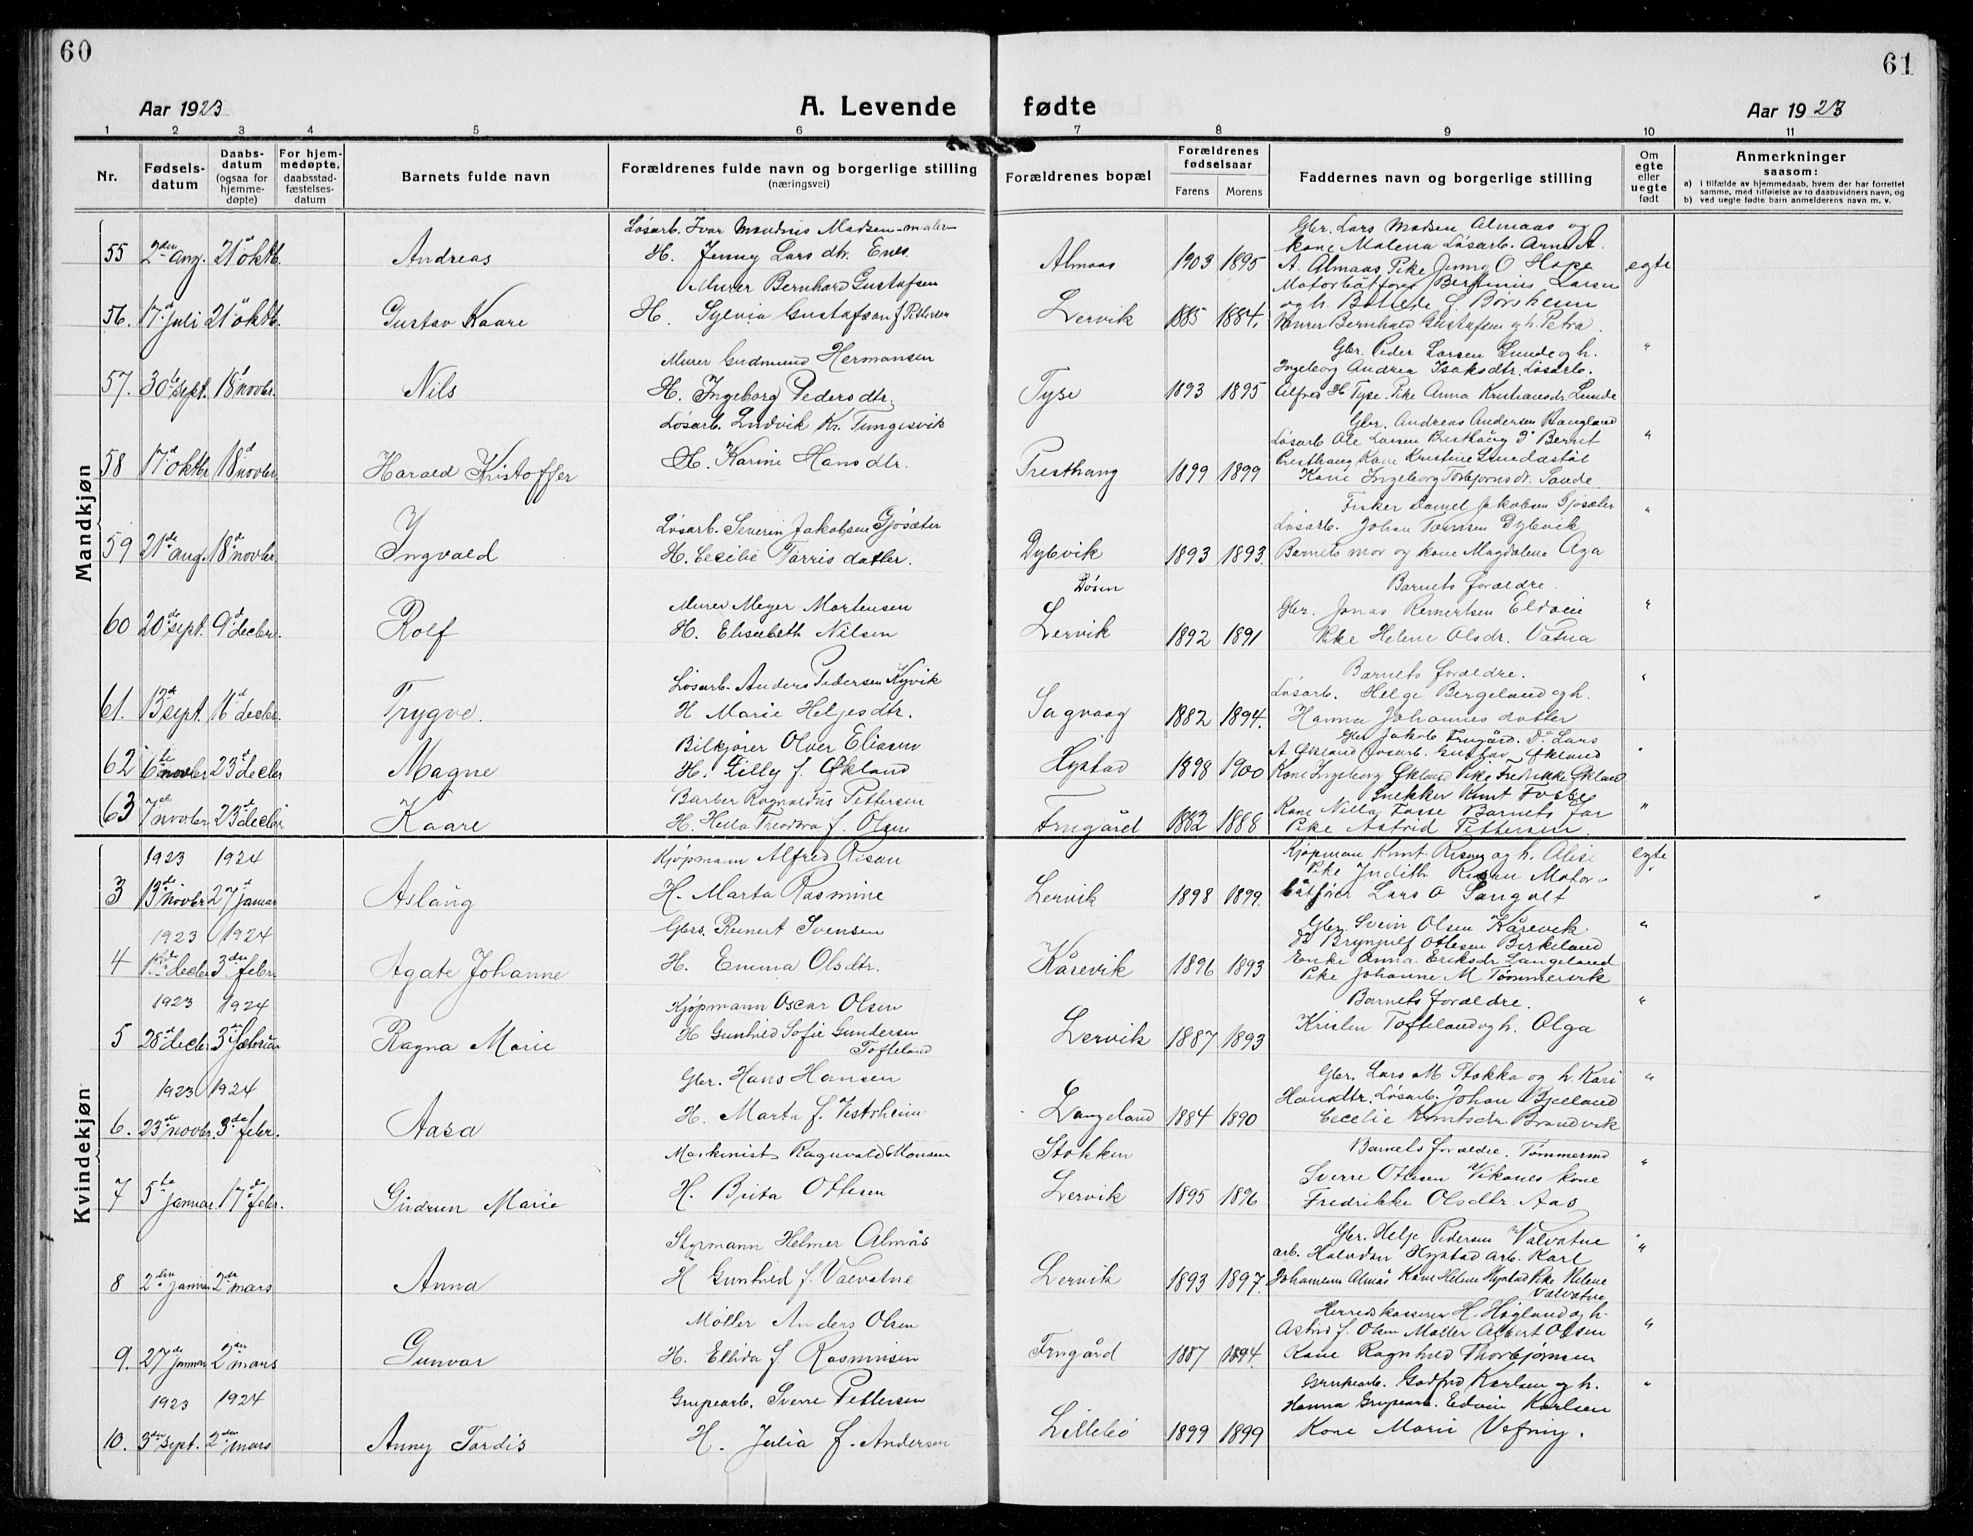 60
61
Aar 1923
A. Levende
fødte
Aar 1923
1 2 3 4 5 6 7 8 9 10 11
Nr.
Fødsels-
datum
Daabs-
datum
(ogsaa for
hjemme-
døpte)
For hjem-
medøpte,
daabsstad-
fæstelses-
datum
Barnets fulde navn
Forældrenes fulde navn og borgerlige stilling
(næringsvei)
Forældrenes bopæl
Forældrenes
fødselsaar
Farens
Morens
Faddernes navn og borgerlige stilling
Om
egte
eller
uegte
født
Anmerkninger
saasom:
a) i tilfælde av hjemmedaab, hvem der har forrettet
samme, med tilføielse av to daabsvidners navn, og
b) ved uegte fødte barn anmelderens navn m. v.
Mandkjøn
Løsarb. Ivar Madsen-maler
Gbr. Lars Madsen Almaas og
kone Malena Løsarb. Arne A.
55 2den aug. 21d oktb. Andreas H. Jenny Lars dtr. Enes Almaas 1903 1895 A. Almaas Pike Jenny O Hope egte
Murer Bernhard Gustafsen
Larsen
og h. S Børsheim
56. 17d juli 21d oktb. Gustav Kaare H. Sylvia Gustafsen f Pettersen Lervik 1885 1884. Murer Bernhard Gustafsen og h. Petra.
Murer Gudmund Hermansen
Gbr. Peder Larsen Lunde og h. "
Ingeborg Andrea Isaksdtr. Løsarb.
57. 30te sept. 18d novbr. Nils H. Ingeborg Pedersdtr. Tyse 1893 1895 Alfred H Tyse. Pike Anna Kristiansdr. Lunde
Løsarb. Ludvik Kr. Tungesvik
Gbr. Andreas Andersen Haugland
Løsarb Ole Larsen Do Bernt "
Presthaug Kone Kristine
58 17d oktbr 18d novbr. Harald Kristoffer H. Karine Hans dtr. Presthaug 1899 1899 Kone Ingeborg Torbjørnsdt. Sande
Fisker Daniel Jakobsen Gjøsæter
Løsarb. Severin Jakobsen Gjøsæter
Løsarb. Johan Dybvik "
59 21de aug. 18d novbr. Ingvald H. Cecilie Torris datter. Dybvik 1893 1893. Barnets mor og kone Magdalena Aga
Døsen
Barnets forældre.
Murer Meyer Mortensen
Gbr. Jonas Reinertsen Eldøie "
60 20de sept. 9d decbr. Rolf H. Elisabeth Nilsen Lervik 1892 1891 Pike Helene Olsdr. Vatna
Løsarb. Anders Pedersen Kyvik
Barnets forældre. "
Løsarb. Helge Bergeland og h.
61. 13de sept. 16d decbr. Trygve. H Marie Heljesdtr. Sagvaag 1882 1894. Hanna Johannes datter
Bilkjører Olver Eliasen
Gbr Jakob Frugård. Do Lars
A Økland Løsarb. Gustav Økland "
62 6te novbr 23d decbr Magne H. Gilly f. Økland Hystad 1898 1900 Kone Ingeborg Økland Pike Fredrikke Økland
Barber Ragnvaldus Pettersen
Snekker Knut Fosse
Kone Nilla Fosse Barnets far "
63 7de novbr 23d decbr Kaare H. Hella Theodora f. Olsen Frugård 1882 1888 Pike Astrid Pettersen.
Kvindekjøn
1923 1924
Kjøpmann Alfred Risøen
Kjøpman Knut Risøen og h. Alise egte
Pike Judith Risøen Motor-
3 13de novbr 27d januar Aslaug H. Marta Rasmine Lervik 1898 1899. båtfører Lars O Sangolt
1923 1924
Gbrs. Reinert Svensen
Gbr. Svein Olsen Kårevik "
Do Brynjulf Otlesen Birkeland
Enke Anna Eriksdr Langeland
4 1ste decbr 3die febr. Agate Johanne H. Emma Olsdtr. Kårevik 1896 1893 Pike Johanne M Tømmervik
1923 1924
Kjøpmann Oscar Olsen
Barnets forældre. "
5 28de decbr 3die februar Ragna Marie H Gunhild Sofie Gundersen
Tofteland
Lervik 1887 1893 Kristen Tofteland og h. Olga
1923 1924
Gbr. Hans Hansen
Gbr. Lars M Stokka og h. Kari "
Hansdtr. Løsarb. Johan Bjelland
6. 23de novbr. 3die febr. Aasa H. Marta f. Vestrheim Langeland 1884 1890 Cecelie Knutsdr Brandvik
Maskinist Ragnvald Monsen
Stokken
Barnets forældre. Tømmermd "
Sverre Otlesen Vikanes kone
7 5te januar 17de febr. Gudrun Marie H. Brita Otlesen Lervik 1895 1896 Fredrikke Olsdtr Aas
Styrmann Helmer Almås
Gbr. Helje Pedersen Valvatne "
arb. Halvdan Hystad arb. Karl
8 2den januar 2den mars Anna H Gunhild f. Valvatne Lervik 1893 1897. Johannesen Almås Kone Helene Hystad Pike Helene
Valvatne
Møller Anders Olsen
Herredskasserer H. Høgland og h. "
Astrid f. Olsen Møller Albert Olsen
9. 27de januar 2den mars Gunvor H. Ellida f. Rasmussen Frugård 1887 1894 Kone Ragnhild Thorbjørnsen
1923 1924
Grupearb. Sverre Pettersen
Grupearb. Godfred Karlsen og h. "
Hanna Grupearb. Edvin Karlsen
10. 3die sept. 2den mars Anny Tordis H. Julia f. Andersen Lillebø 1899 1899 Kone Marie Vefring.